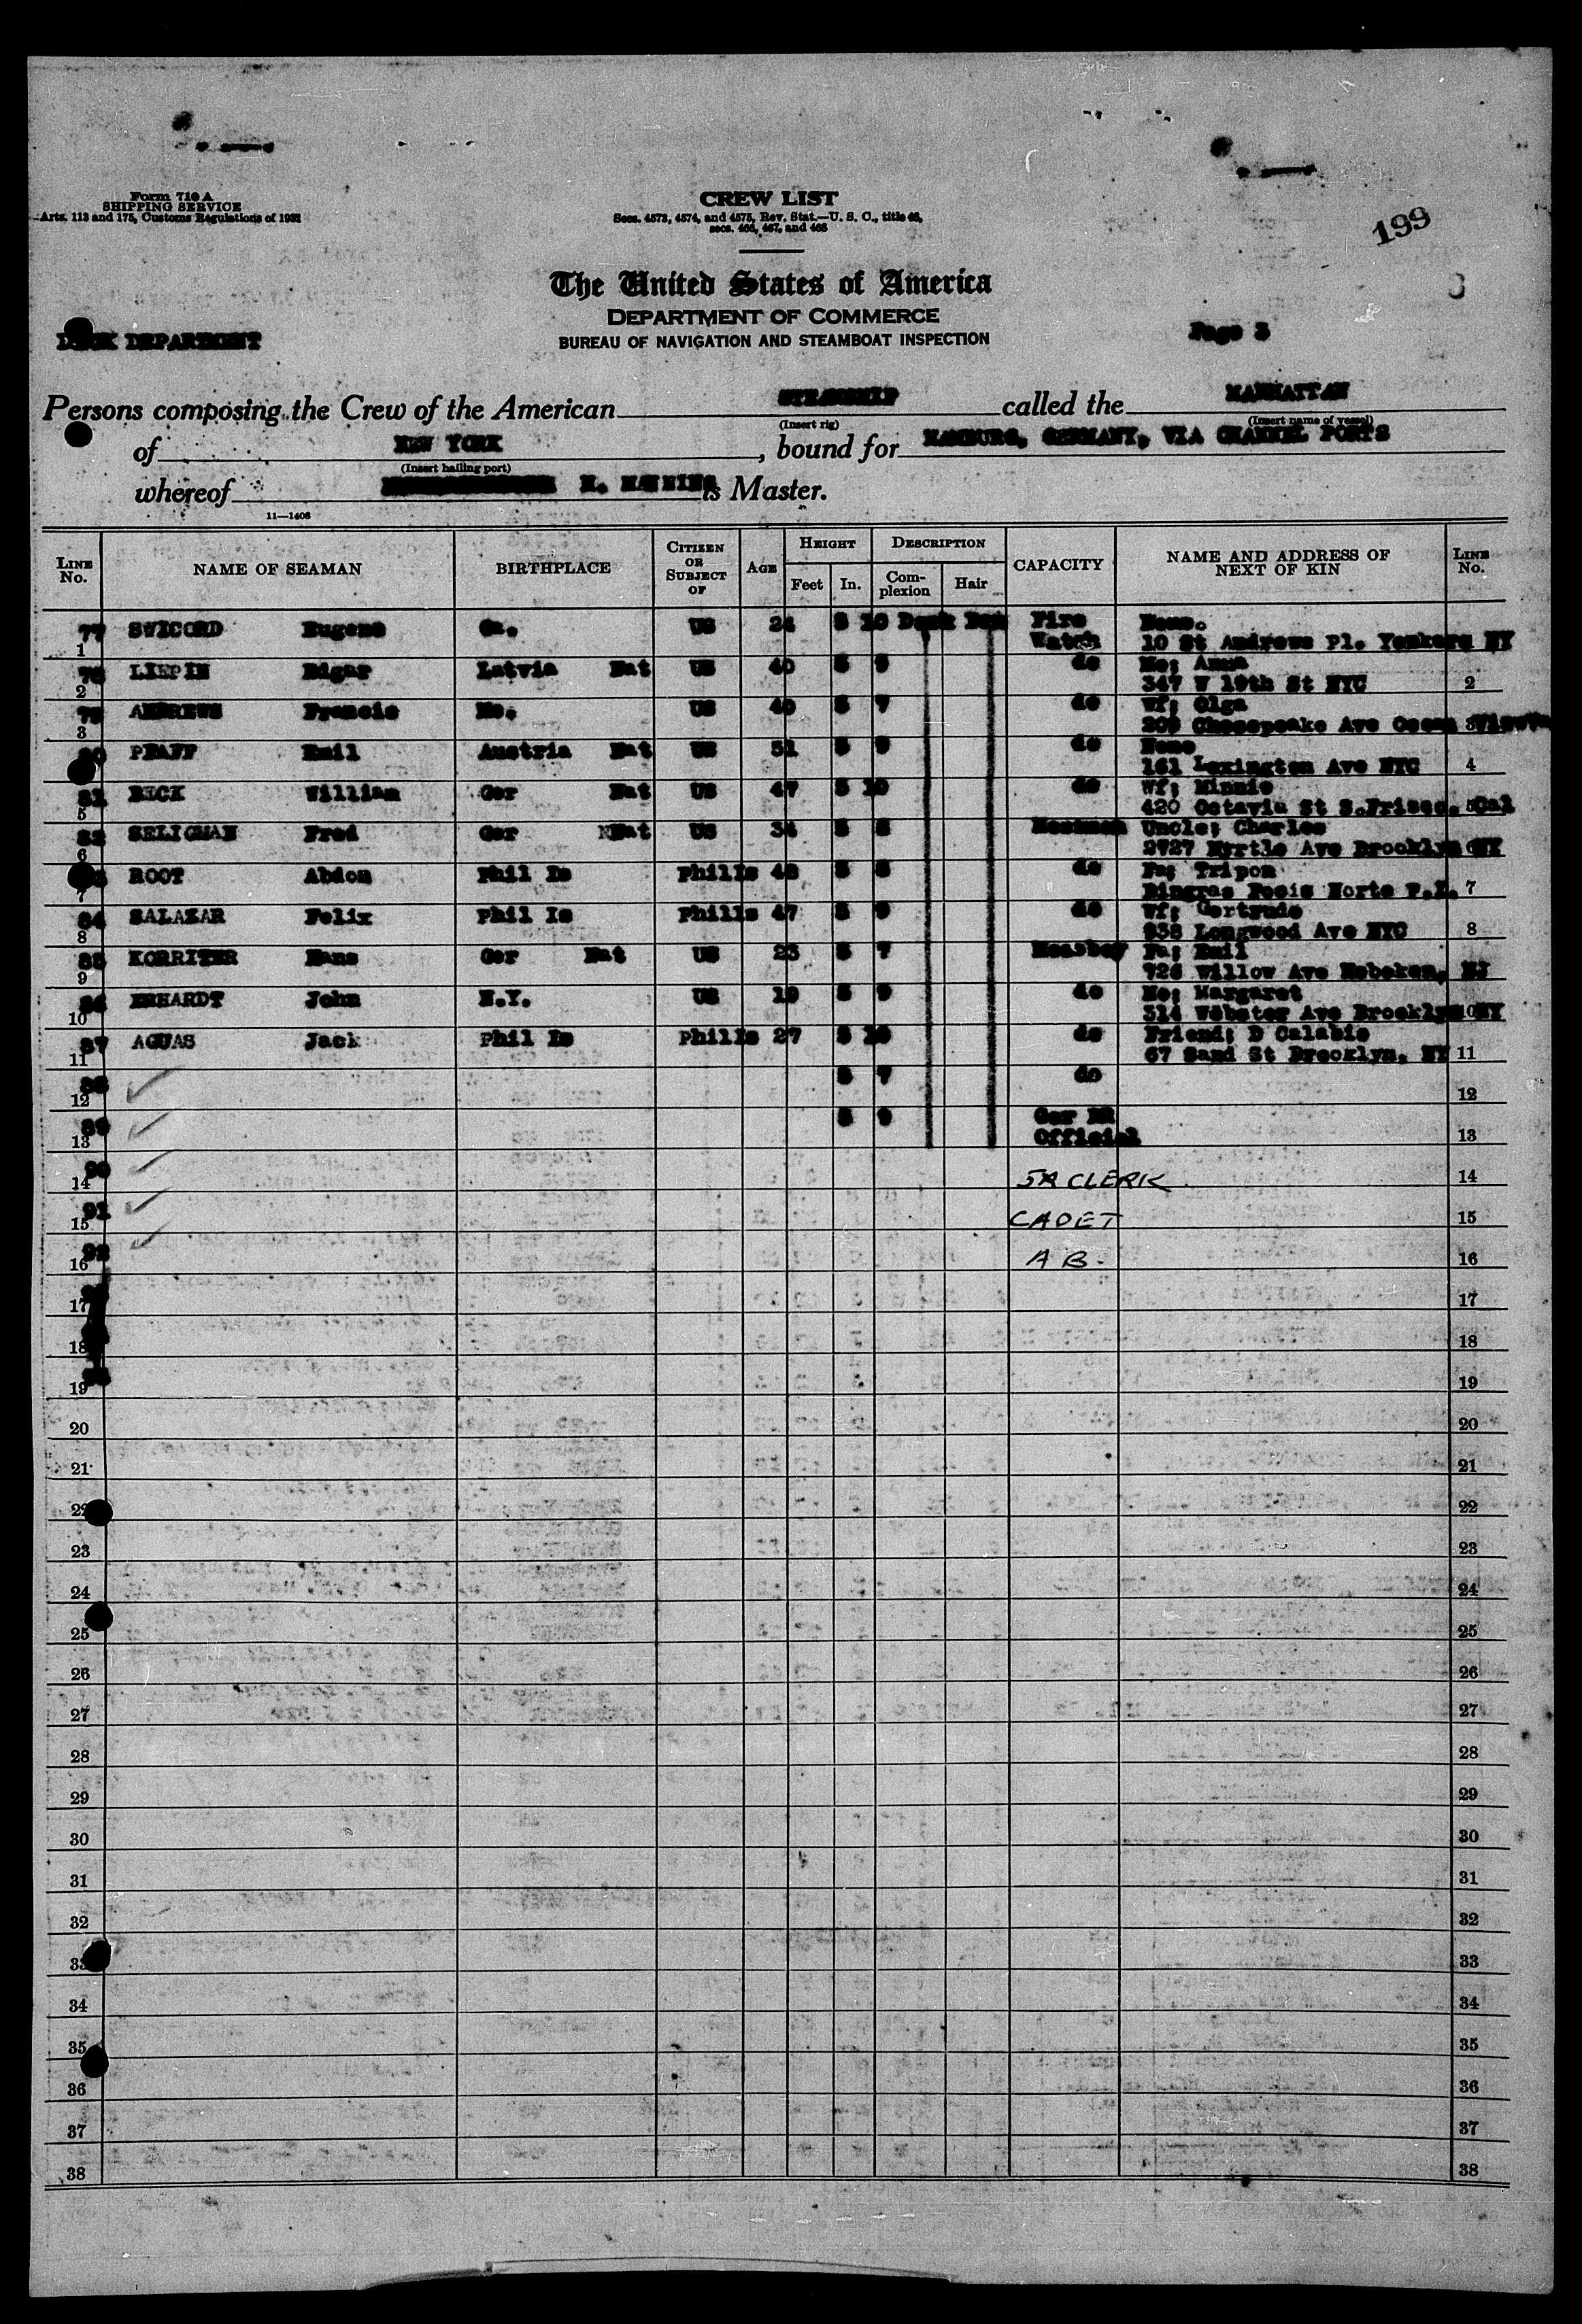 Form 710 A
SHIPPING SERVICE
Arts. 113 and 175, Customs Regulations of 1931
CREW LIST
Secs. 4573, 4574, and 4575, Rev. Stat.—U. S. C., title 46,
secs. 466, 467, and 468
199
The United States of America
DEPARTMENT OF COMMERCE
BUREAU OF NAVIGATION AND STEAMBOAT INSPECTION
DECK DEPARTMENT
Page 3
Persons composing the Crew of the American STEAMSHIP called the MANHATTAN
(Insert rig) (Insert name of vessel)
of NEW YORK, bound for HAMBURG, GERMANY, VIA CHANNEL PORTS
(Insert hailing port)
whereof H. MANNING is Master.
11—1406
LINE No. NAME OF SEAMAN BIRTHPLACE CITIZEN OR SUBJECT OF AGE HEIGHT Feet In. DESCRIPTION Complexion Hair CAPACITY NAME AND ADDRESS OF NEXT OF KIN LINE No.
77 1 SWICORD Eugene Ga. US 24 5 10 Fire Watch None.
10 St Andrews Pl. Yonkers NY
78 2 LIEPIN Edgar Latvia Nat US 40 5 do Mo; Anna
347 W 19th St NYC 2
79 3 ANDREWS Francis US 5 7 do Wf; Olga
209 Chesepeake Ave Ocean View
80 PFAFF Emil Austria Nat US 51 5 9 do None
161 Lexington Ave NYC 4
81 5 BECK William Ger Nat US 47 5 10 do Wf; Minnie
420 Octavia St S.Frisco. Cal
82 6 SELIGMAN Fred Ger Nat US 34 5 Messman Uncle; Charles
2727 Myrtle Ave Brooklyn NY
7 ROOT Abdon Phil Is PhilIs 5 do Fa; Tripon
Norte P.I. 7
84 8 SALAZAR Felix Phil Is PhilIs 47 5 9 do Wf; Gertrude
938 Longwood Ave NYC 8
85 9 KORRITER Hans Ger Nat US 23 5 7 Messboy Fa; Emil
726 Willow Ave Hoboken, NJ
86 10 ERHARDT John N.Y. US 19 5 9 do Mo; Margaret
314 Webster Ave Brooklyn NY
87 11 AGUAS Jack Phil Is PhilIs 27 5 10 do Friend; D Calabie
67 Sand St Brooklyn, NY 11
88 12 5 7 do 12
89 13 5 9 Official 13
90 14 CLERK 14
91 15 CADET 15
92 16 A B. 16
17 17
18 18
19 19
20 20
21 21
22 22
23 23
24 24
25 25
26 26
27 27
28 28
29 29
30 30
31 31
32 32
33 33
34 34
35 35
36 36
37 37
38 38